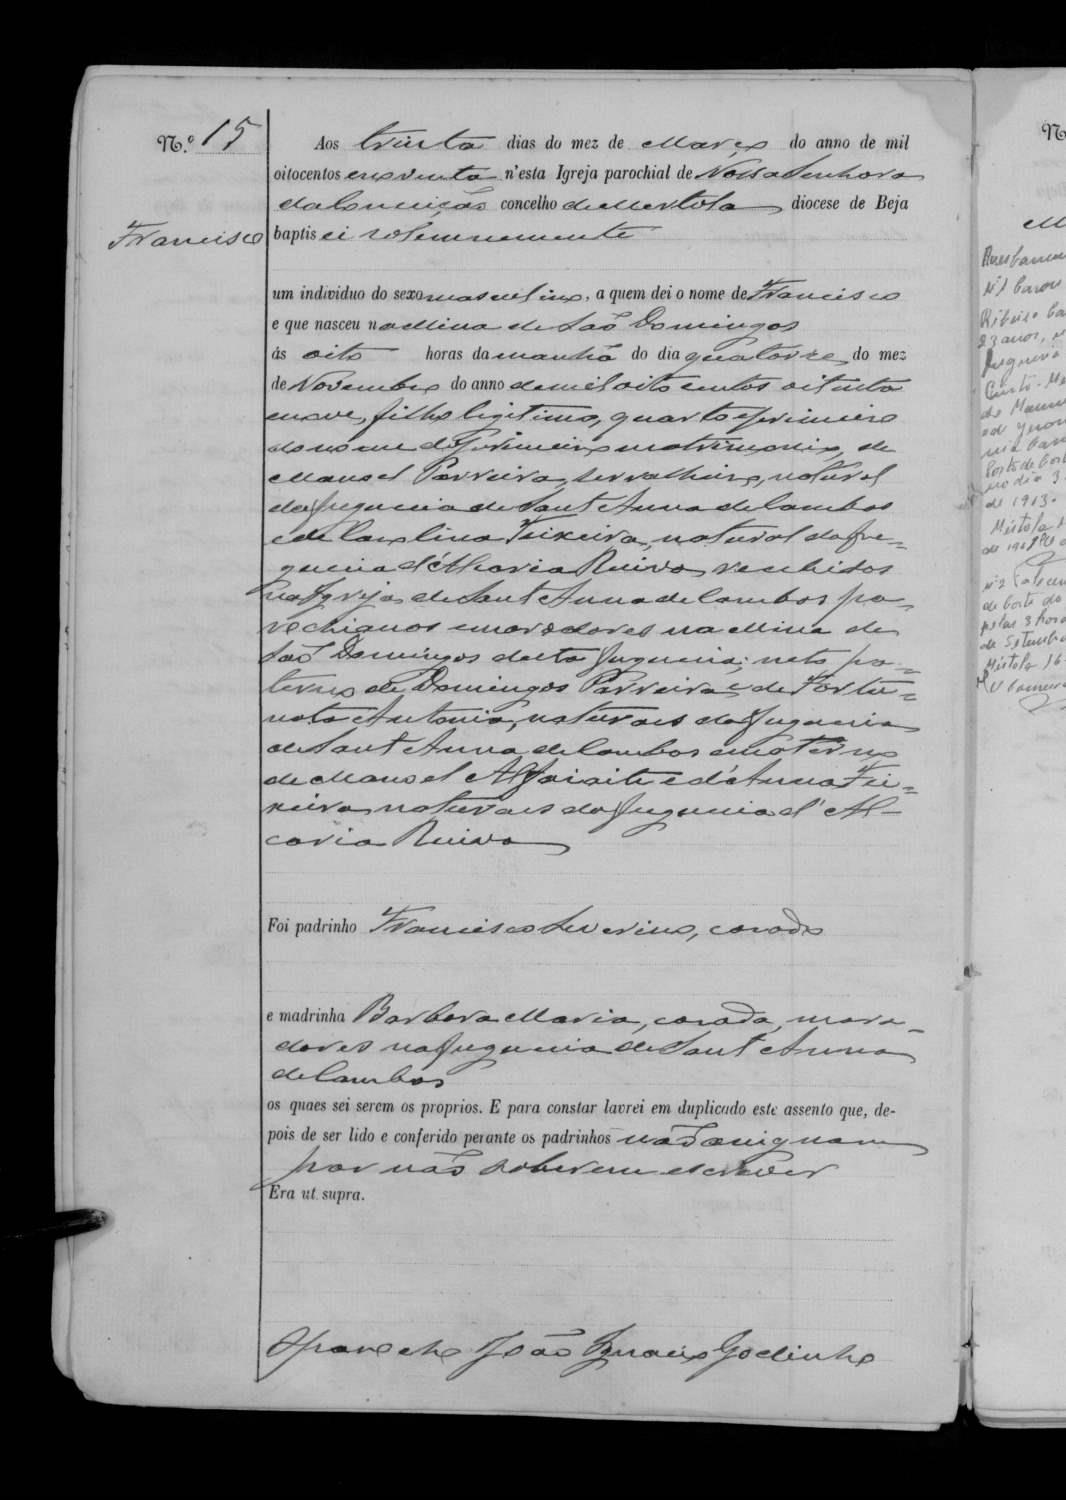 N.º 15
Aos trinta dias do mez de Março do anno de mil
oitocentos e noventa n'esta Igreja parochial de Nossa Senhora
da Conceição concelho de Mertola diocese de Beja
Francisco
baptisei solemnemente
um individuo do sexo masculino, a quem dei o nome de Francisco
e que nasceu na Mina de São Domingos
ás oito horas da manhã do dia quatorze do mez
de Novembro do anno de mil oito centos oitenta
e nove, filho legitimo, quarto e primeiro
do nome de primeiro matrimonio, de
Manoel Parreira, serralheiro, natural
da freguesia de Sant Anna de Cambas
e de Carolina Teixeira, natural da fre=
guesia d'Alcaria Ruiva, recebidos
na Igreja de Sant Anna de Cambas pa=
rochianos e moradores na Mina de
São Domingos desta freguesia; neto pa=
terno de Domingos Parreira e de Fortu=
nata Antonia, naturaes da freguesia
de Sant Anna de Cambas e materno
de Manoel Alfaiate e d'Anna Tei=
xeira naturaes da freguesia d'Al-
caria Ruiva
Foi padrinho Francisco Severino, casado
e madrinha Barbara Maria, casada, mora-
dores na freguesia de Sant Anna
de Cambas
os quaes sei serem os proprios. E para constar lavrei em duplicado este assento que, de-
pois de ser lido e conferido perante os padrinhos não assignam
por não saberem escrever
Era ut supra.
O parocho João Ignacio Godinho
N
23 anos,
de 1913.
Mertola
nº 2
pelas 3 horas
de Setembro
Mertola 16